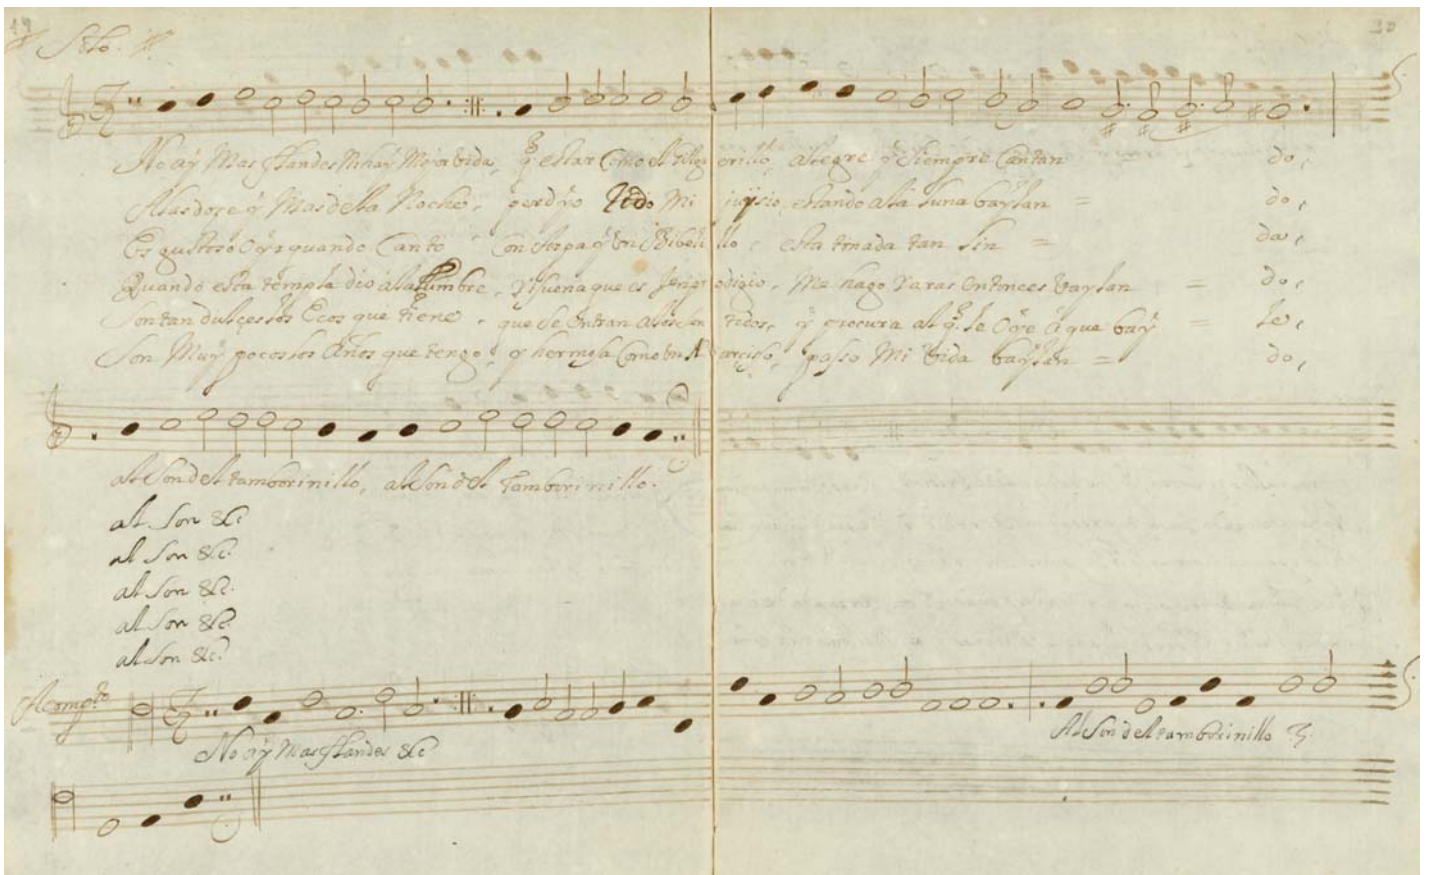 19
20
Solo.
No aÿ Mas flandes Ni haÿ Mejor vida, q̃ estar Como el tilgerillo, alegre ÿ siempre Cantan do,
Alas dose ÿ Mas de la Noche, perdÿ o todo Mi juÿsio, estando ala luna baÿlan = do,
Es gustoso Oÿr quando Canto Con Arpa ÿ Un Ribelillo, esta tonada tan lin = da,
Quando esta templa dio a la lumbre, Y suena que es prodigio, Me hago Raras entonces baÿlan = do,
Son tan dulçes los Ecos que tiene, que se Entran a los Sentidos, ÿ procura al q̃ le Oÿe A que baÿ = le,
Son Muÿ pocos los Años que tengo, ÿ hermosa Como Un Narçiso, passo Mi vida baÿlan = do,
al Son del tamborinillo, al Son del tamborinillo.
al Son &c
al Son &c.
al Son &c.
al Son &c.
al Son &c.
Acompto
No aÿ Mas flandes &c
Al Son del tamborinillo